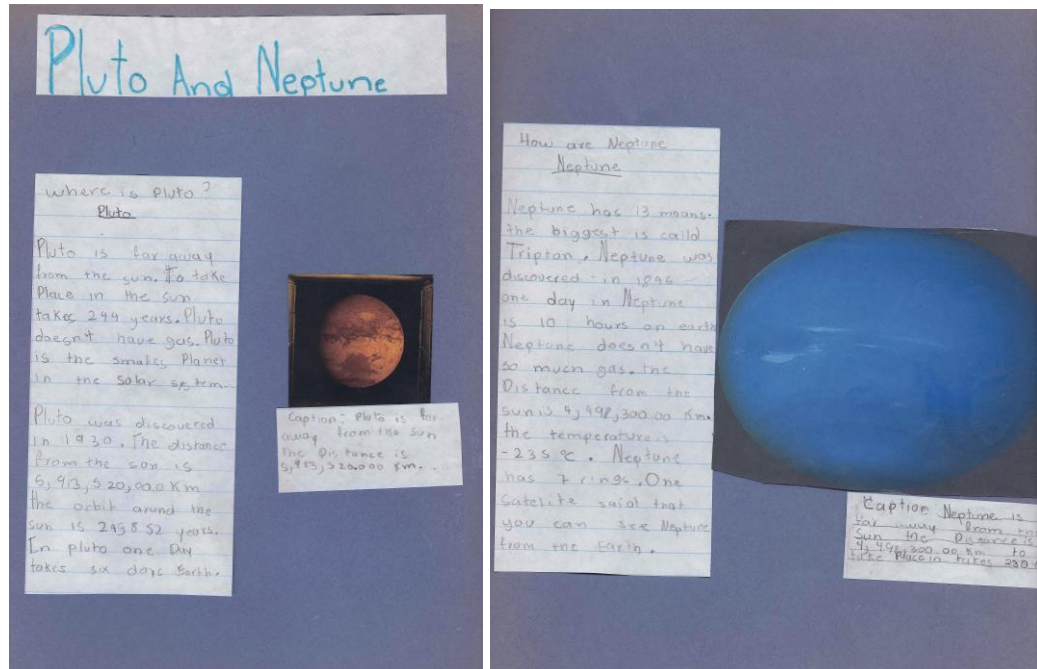 Pluto And Neptune
where is Pluto?
Pluto
Pluto is far away
from the sun. To take
Place in the sun
takes 244 years. Pluto
doesn't have gas. Pluto
is the smales Planet
in the solar system.
Pluto was discovered
in 1930. The distance
from the son is
5,913,520,00.0 Km
the orbit arund the
sun is years.
In pluto one Day
takes six days Earth.
Caption: Pluto is far
away from the sun
The Distance is
5,913,520.000 Km.
How are Neptune
Neptune
Neptune has 13 moans.
the biggest is calld
Triptan. Neptune was
discovered in
one day in Neptune
is 10 hours on earth
Neptune doesn't have
so much gas. the
Distance from the
sun is 4,498,300.00 Km.
the temperature is
-235 °C. Neptune
has 7 rings. One
Satelite said that
you can see Neptune
from the Earth.
Caption Neptune is
far away from the
sun the Distance is
4,498,300.00 Km to
take Place in takes 230